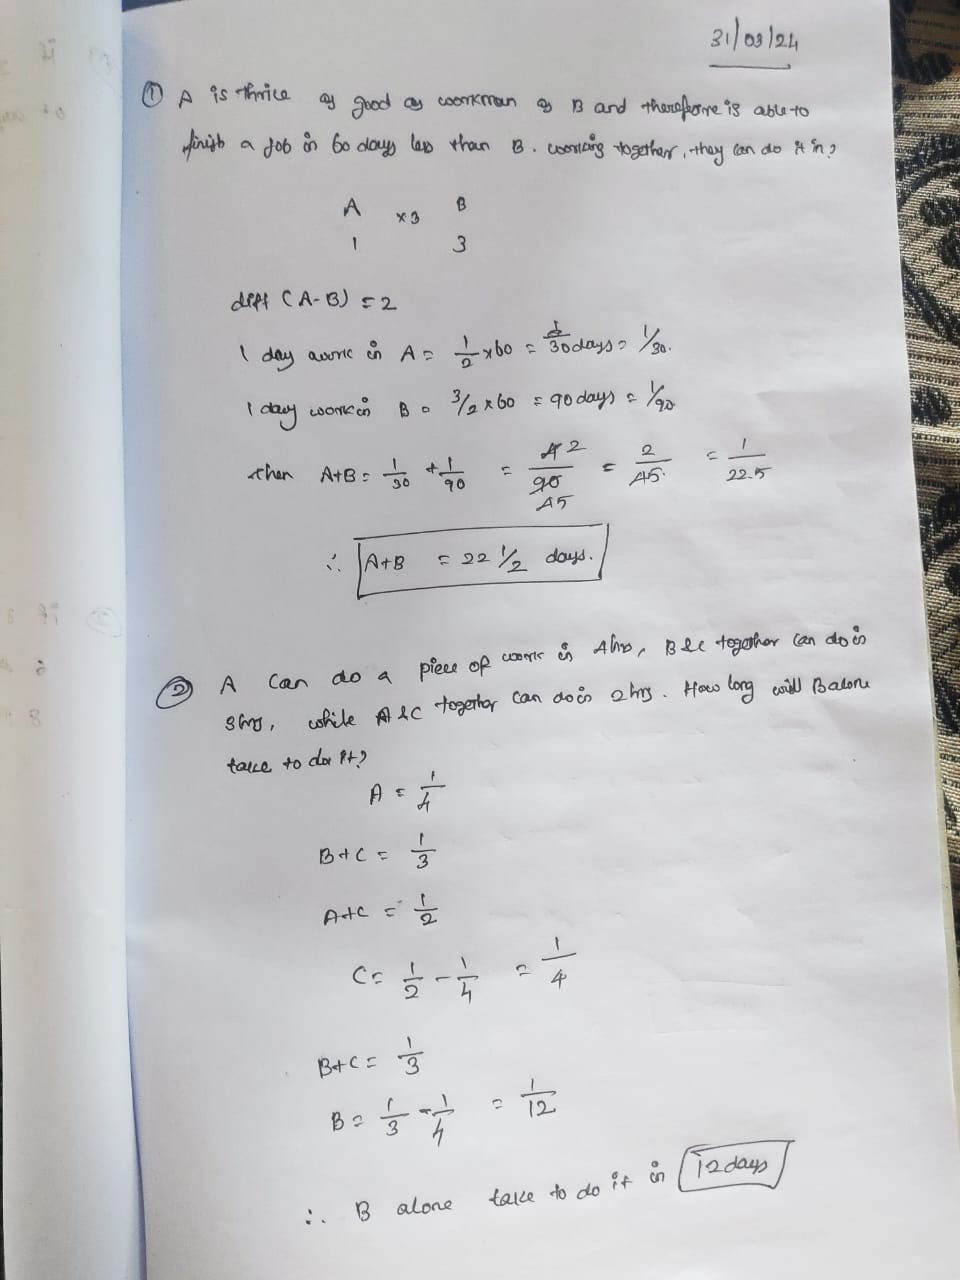 31/03/24
① A is thrice as good as workman as B and therefore is able to
finish a job in 60 days less than B. working together, they can do it in?
A ×3 B
1 3
diff (A-B) = 2
1 day work in A = 1/2 × 60 = 30 days = 1/30.
1 day work in B = 3/2 × 60 = 90 days = 1/90
then A+B = 1/30 + 1/90 = 4 2/90 45 = 2/45. = 1/22.5
∴ A+B = 22 1/2 days.
② A can do a piece of work in 4 hrs, B & C together can do in
3 hrs, while A & C together can do in 2 hrs. How long will B alone
take to do it?
A = 1/4
B+C = 1/3
A+C = 1/2
C = 1/2 - 1/4 = 1/4
B+C = 1/3
B = 1/3 - 1/4 = 1/12
∴ B alone take to do it in 12 days